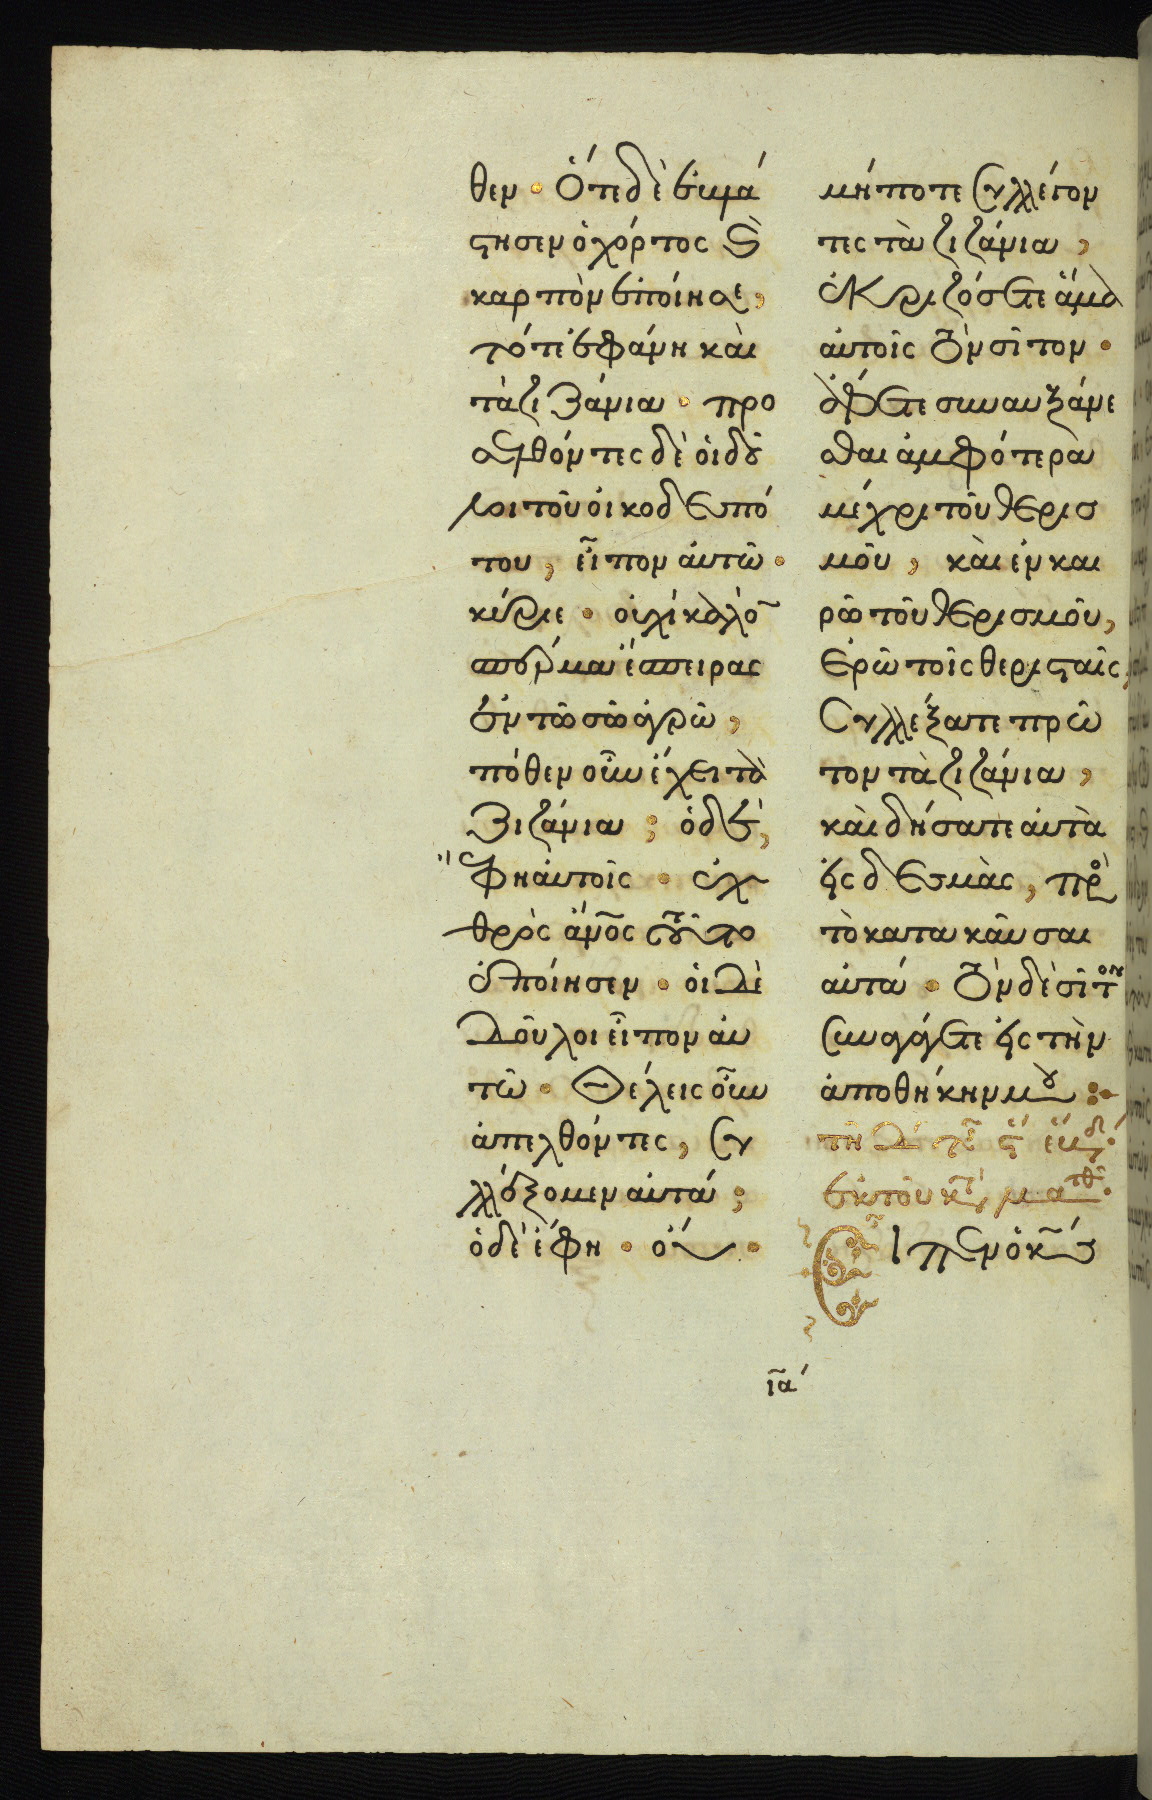 θεν · Ὅτε δὲ ἐβλά
στησεν ὁ χόρτος καὶ
καρπὸν ἐποίησε,
τότε ἐφάνη καὶ
τὰ ζιζάνια · προ
σελθόντες δὲ οἱ δοῦ
λοι τοῦ οἰκοδεσπό
του, εἶπον αὐτῶ ·
κύριε · οὐχὶ καλὸν
σπέρμα ἔσπειρας
ἐν τῶ σῶ ἀγρῶ,
πόθεν οὖν ἔχει τὰ
ζιζάνια ; ὁ δὲ ἔ,
φη αὐτοῖς · ἐχ
θρὸς ἄν̅ο̅ς τοῦτο
ἐποίησεν · οἱ δὲ
δοῦλοι εἶπον αὐ
τῶ · Θέλεις οὖν
ἀπελθόντες, συ
λλέξομεν αὐτά ;
ὁ δὲ ἔφη · οὔ ·
μήποτε συλλέγον
τες τὰ ζιζάνια,
ἐκριζώσητε ἅμα
αὐτοῖς τὸν σῖτον ·
ἄφετε συναυξάνε
σθαι ἀμφότερα
μέχρι τοῦ θερισ
μοῦ, καὶ ἐν και
ρῶ τοῦ θερισμοῦ,
ἐρῶ τοῖς θερισταῖς,
Συλλέξατε πρῶ
τον τὰ ζιζάνια,
καὶ δήσατε αὐτὰ
εἰς δεσμὰς, πρὸς
τὸ κατακαῦσαι
αὐτά · τὸν δὲ σῖτον
συναγάγετε εἰς τὴν
ἀποθήκην μου :·
τῆ δ τῆς ς ἑβδ ·
ἐκ τοῦ κτ ματθ ·
Εἶπεν ὁ κ̅ς
ια